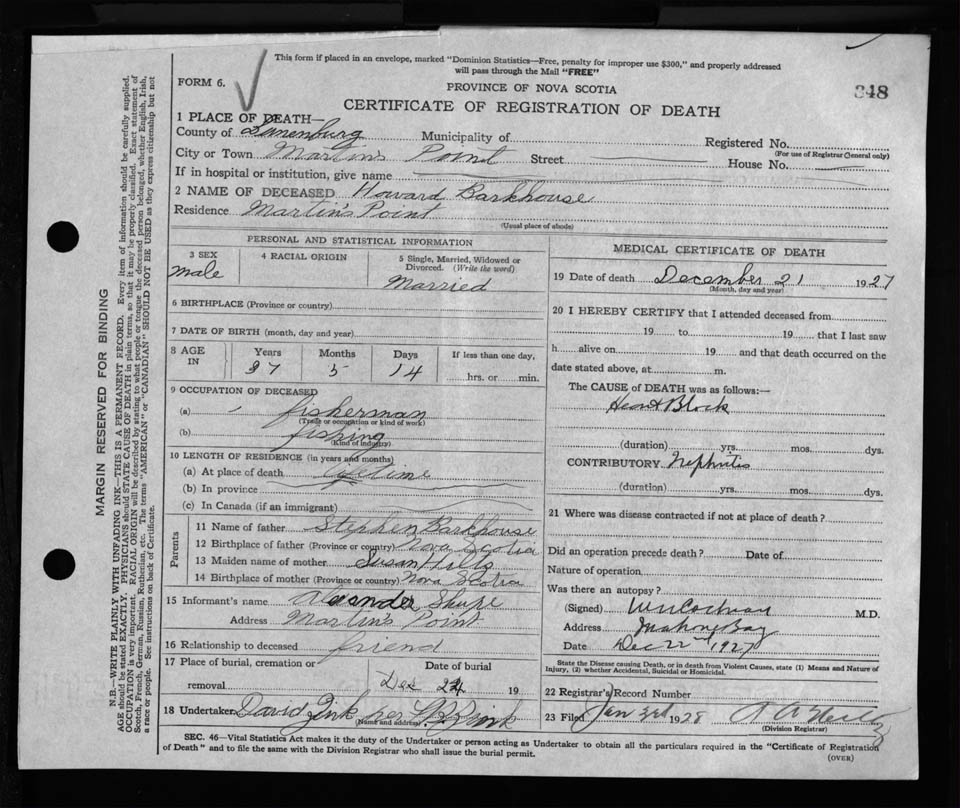 This form if placed in an envelope, marked "Dominion Statistics—Free, penalty for improper use $300," and properly addressed
will pass through the Mail "FREE"
FORM 6.
PROVINCE OF NOVA SCOTIA
348
CERTIFICATE OF REGISTRATION OF DEATH
1 PLACE OF DEATH—
County of Lunenburg Municipality of Registered No.
(For use of Registrar General only)
City or Town Martin's Point Street House No.
If in hospital or institution, give name
2 NAME OF DECEASED Howard Barkhouse
Residence Martin's Point
(Usual place of abode)
PERSONAL AND STATISTICAL INFORMATION
3 SEX
male
4 RACIAL ORIGIN
5 Single, Married, Widowed or
Divorced. (Write the word)
Married
6 BIRTHPLACE (Province or country)
7 DATE OF BIRTH (month, day and year)
8 AGE
IN
Years Months Days If less than one day,
37 5 14 hrs. or min.
9 OCCUPATION OF DECEASED
(a) fisherman
(Trade or occupation or kind of work)
(b) fishing
(Kind of industry)
10 LENGTH OF RESIDENCE (in years and months)
(a) At place of death lifetime
(b) In province
(c) In Canada (if an immigrant)
Parents
11 Name of father Stephen Barkhouse
12 Birthplace of father (Province or country) Nova Scotia
13 Maiden name of mother Susan Hiltz
14 Birthplace of mother (Province or country) Nova Scotia
15 Informant's name Alexander Shupe
Address Martin's Point
16 Relationship to deceased friend
17 Place of burial, cremation or Date of burial
removal Dec 24 19
18 Undertaker David Zink per Zink
(Name and address)
MEDICAL CERTIFICATE OF DEATH
19 Date of death December 21 1927
(Month, day and year)
20 I HEREBY CERTIFY that I attended deceased from
19 to 19 , that I last saw
h alive on 19 and that death occurred on the
date stated above, at m.
The CAUSE of DEATH was as follows:—
Heart Block
(duration) yrs. mos. dys.
CONTRIBUTORY Nephritis
(duration) yrs. mos. dys.
21 Where was disease contracted if not at place of death?
Did an operation precede death? Date of
Nature of operation
Was there an autopsy?
(Signed) Cochran M.D.
Address Mahone Bay
Date Dec 22nd 1927
State the Disease causing Death, or in death from Violent Causes, state (1) Means and Nature of
Injury, (2) whether Accidental, Suicidal or Homicidal.
22 Registrar's Record Number
23 Filed Jan 3rd 1928
(Division Registrar)
SEC. 46—Vital Statistics Act makes it the duty of the Undertaker or person acting as Undertaker to obtain all the particulars required in the "Certificate of Registration
of Death" and to file the same with the Division Registrar who shall issue the burial permit.
(OVER)
MARGIN RESERVED FOR BINDING
N.B.—WRITE PLAINLY WITH UNFADING INK—THIS IS A PERMANENT RECORD. Every item of information should be carefully supplied.
AGE should be stated EXACTLY. PHYSICIANS should STATE CAUSE OF DEATH in plain terms, so that it may be properly classified. Exact statement of
OCCUPATION is very important. RACIAL ORIGIN will be described by stating to what people or tongue the deceased person belonged, whether English, Irish,
Scotch, French, German, Russian, Ruthenian, etc. The terms "AMERICAN" or "CANADIAN" SHOULD NOT BE USED as they express citizenship but not
a race or people. See instructions on back of Certificate.